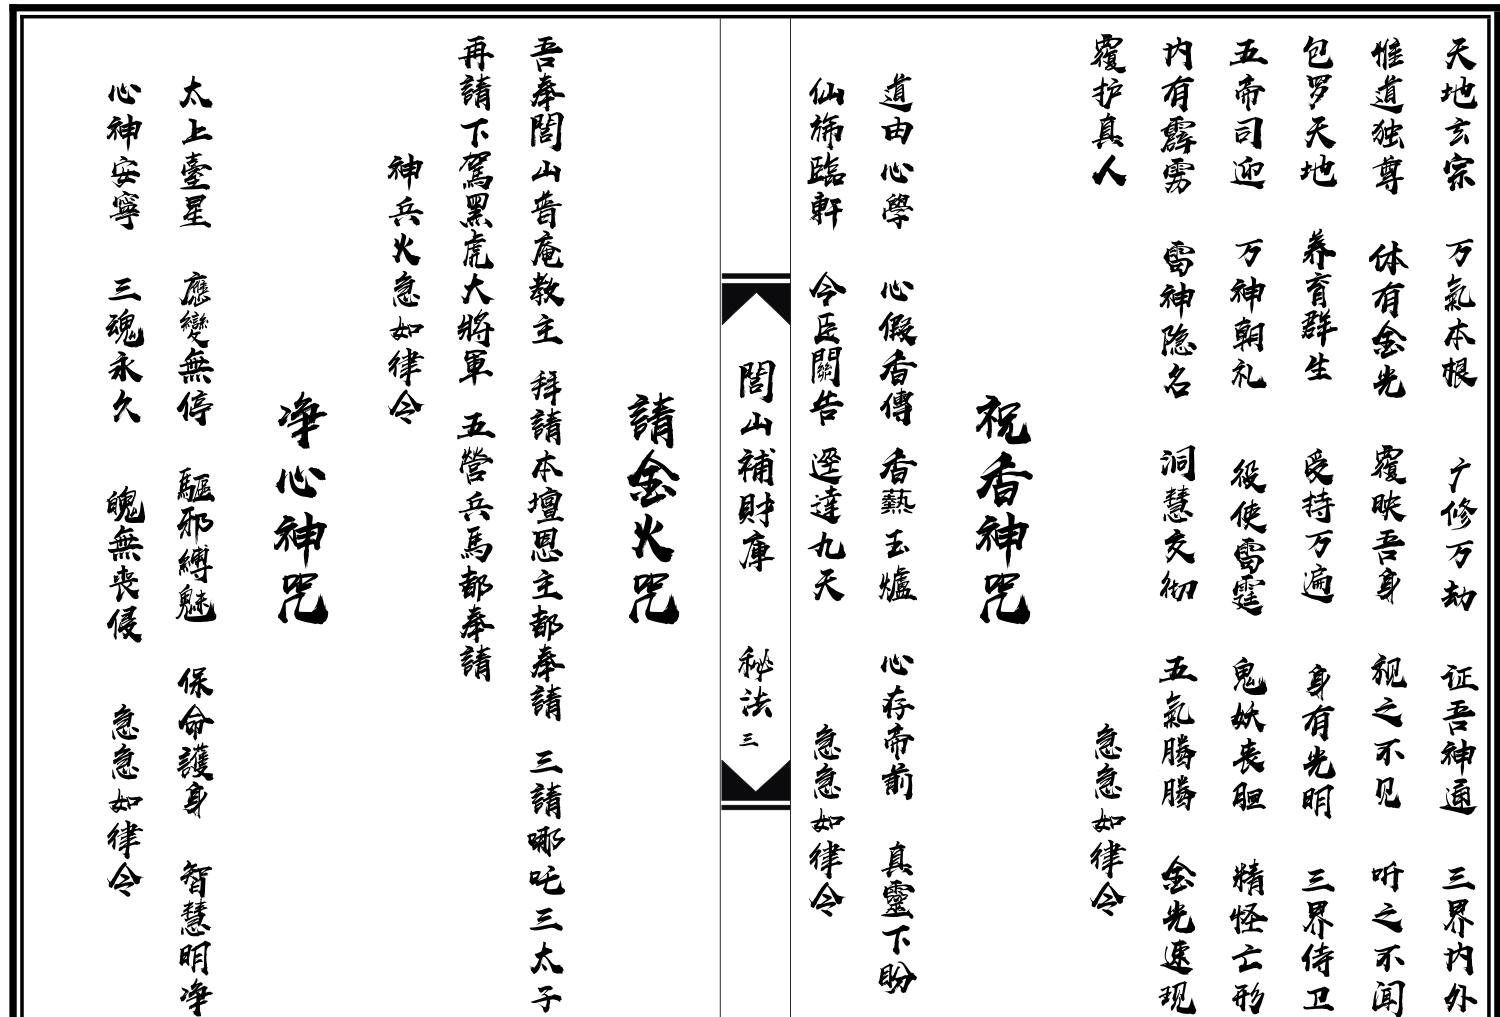 天地玄宗 万氣本根 广修万劫 证吾神通 三界内外
惟道独尊 体有金光 覆映吾身 视之不见 听之不闻
包罗天地 养育群生 受持万遍 身有光明 三界侍卫
五帝司迎 万神朝礼 役使雷霆 鬼妖丧胆 精怪亡形
内有霹雳 雷神隐名 洞慧交彻 五氣腾腾 金光速现
覆护真人 急急如律令
祝香神咒
道由心學 心假香傳 香爇玉爐 心存帝前 真靈下盼
仙旆臨軒 今臣關告 逕達九天 急急如律令
閭山補財庫 秘法 三
請金火咒
吾奉閭山普庵教主 拜請本壇恩主都奉請 三請哪吒三太子
再請下駕黑虎大將軍 五營兵馬都奉請
神兵火急如律令
净心神咒
太上臺星 應變無停 驅邪縛魅 保命護身 智慧明净
心神安寧 三魂永久 魄無丧侵 急急如律令